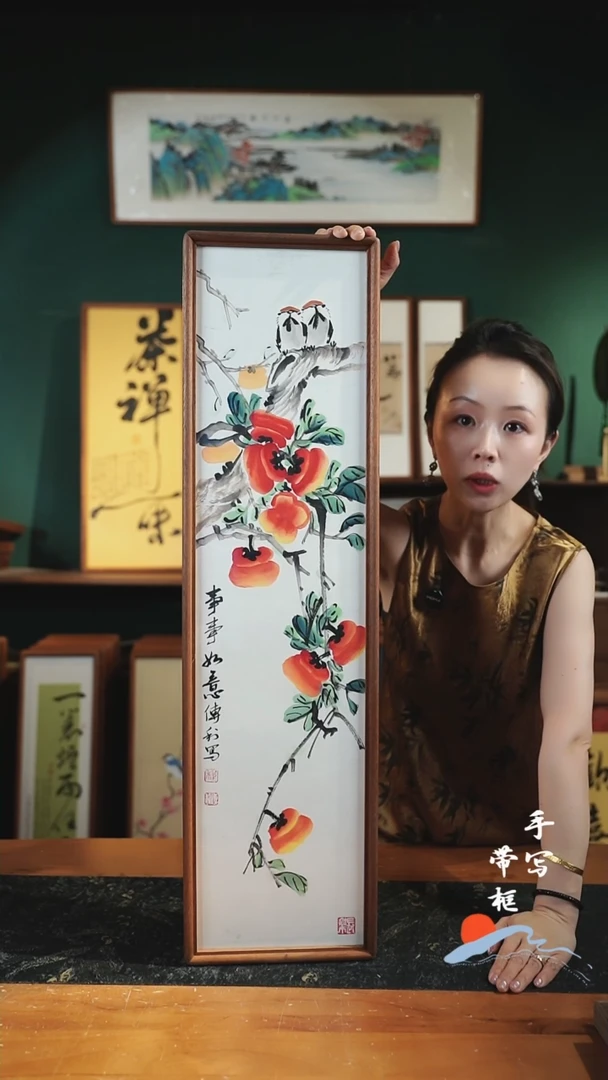 茶
禅
一
味
事事如意傅利写
一蓑烟雨任
手写
带框